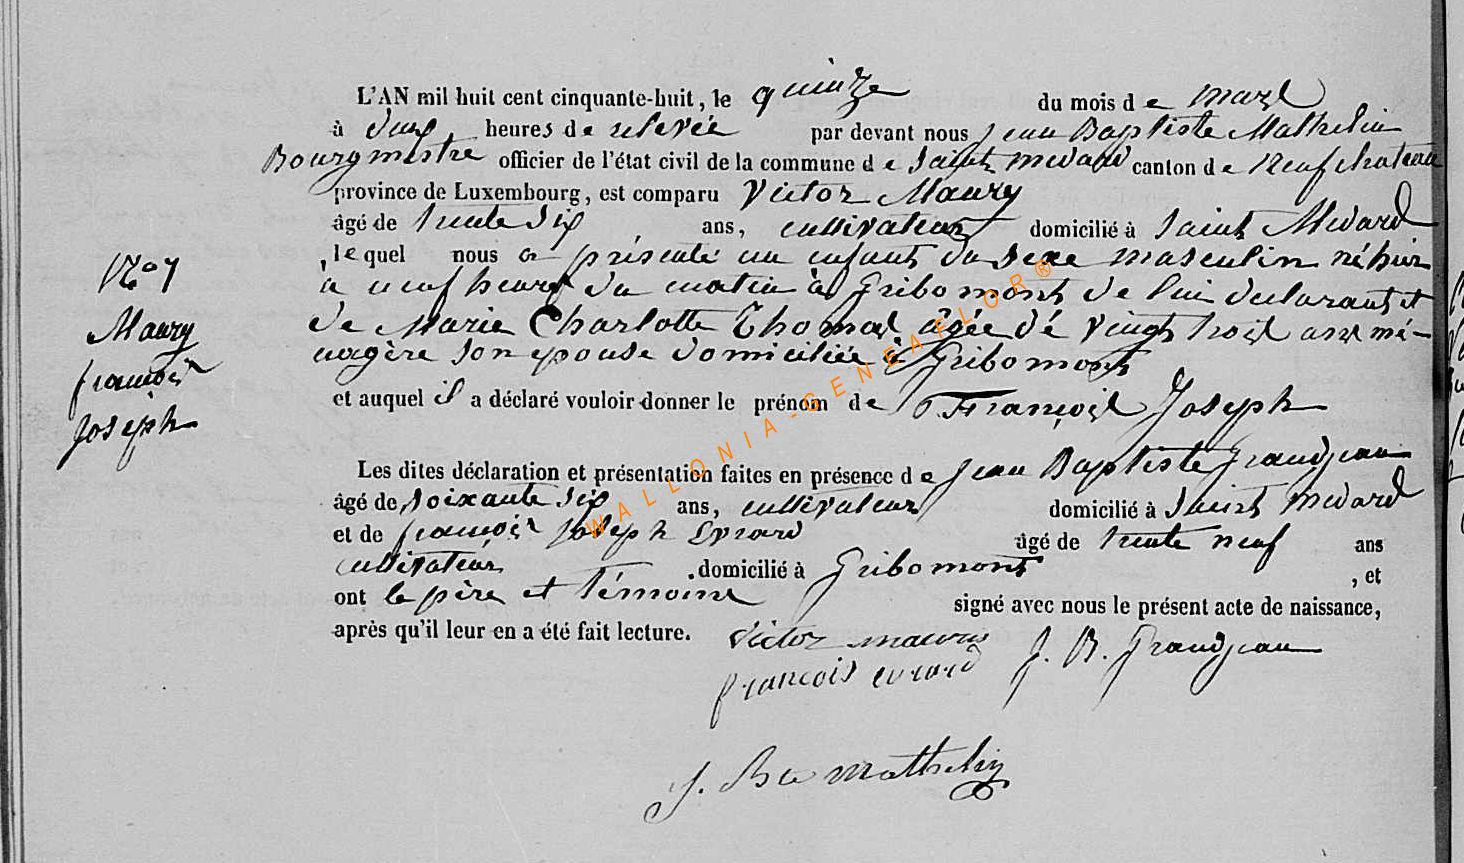 L'AN mil huit cent cinquante-huit, le quinze du mois de mars
à deux heures de relevée par devant nous Jean Baptiste Mathelin
Bourgmestre officier de l'état civil de la commune de Saint Médard canton de Neufchateau
province de Luxembourg, est comparu Victor Maury
âgé de trente six ans, cultivateur domicilié à Saint Médard
, lequel nous a présenté un enfant du sexe masculin né hier
à neuf heures du matin à Gribomont de lui déclarant et
de Marie Charlotte Thomas âgée de vingt trois ans mé-
nagère son épouse domiciliée à Gribomont
et auquel il a déclaré vouloir donner le prénom de François Joseph
N° 7
Maury
françois
Joseph
Les dites déclaration et présentation faites en présence de Jean Baptiste Grandjean
âgé de soixante six ans, cultivateur domicilié à Saint Médard
et de françois Joseph Evrard âgé de trente neuf ans
cultivateur domicilié à Gribomont , et
ont le père et témoins signé avec nous le présent acte de naissance,
après qu'il leur en a été fait lecture.
Victor maury
françois evrard J. B. Grandjean
J. Bte Mathelin
WALLONIA-GENEAFLOR®